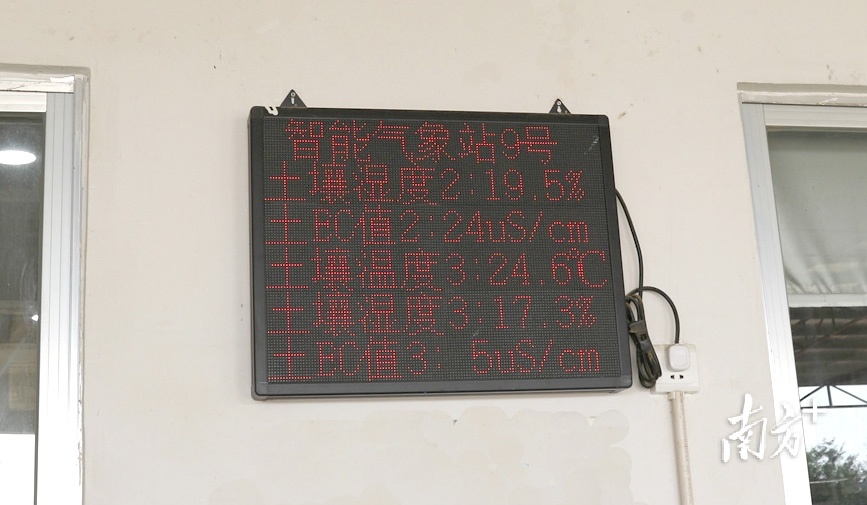 智能气象站9号
土壤湿度2:19.5%
土EC值2:24uS/cm
土壤温度3:24.6℃
土壤湿度3:17.3%
土EC值3: 5uS/cm
南方+